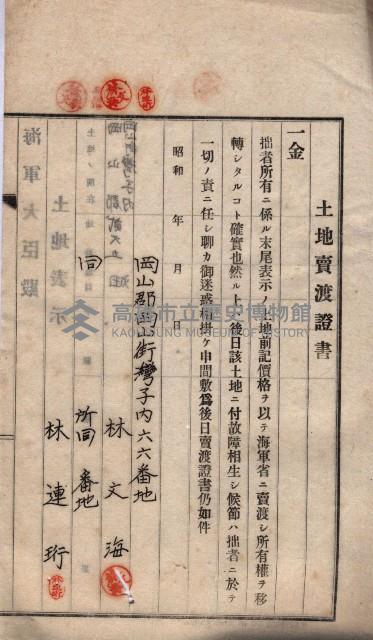 土地賣渡證書
一金
拙者所有ニ係ル末尾表示ノ土地前記價格ヲ以テ海軍省ニ賣渡シ所有權ヲ移
轉シタルコト確實也然ル上ハ後日該土地ニ付故障相生シ候節ハ拙者ニ於テ
一切ノ責ニ任シ聊カ御迷惑相掛ケ申間敷爲後日賣渡證書仍如件
昭和 年 月 日
岡山郡岡山街灣子內六六番地
林文海
同 所同番地
林連珩
土地表示
海軍大臣殿
高雄市立歷史博物館
KAOHSIUNG MUSEUM OF HISTORY